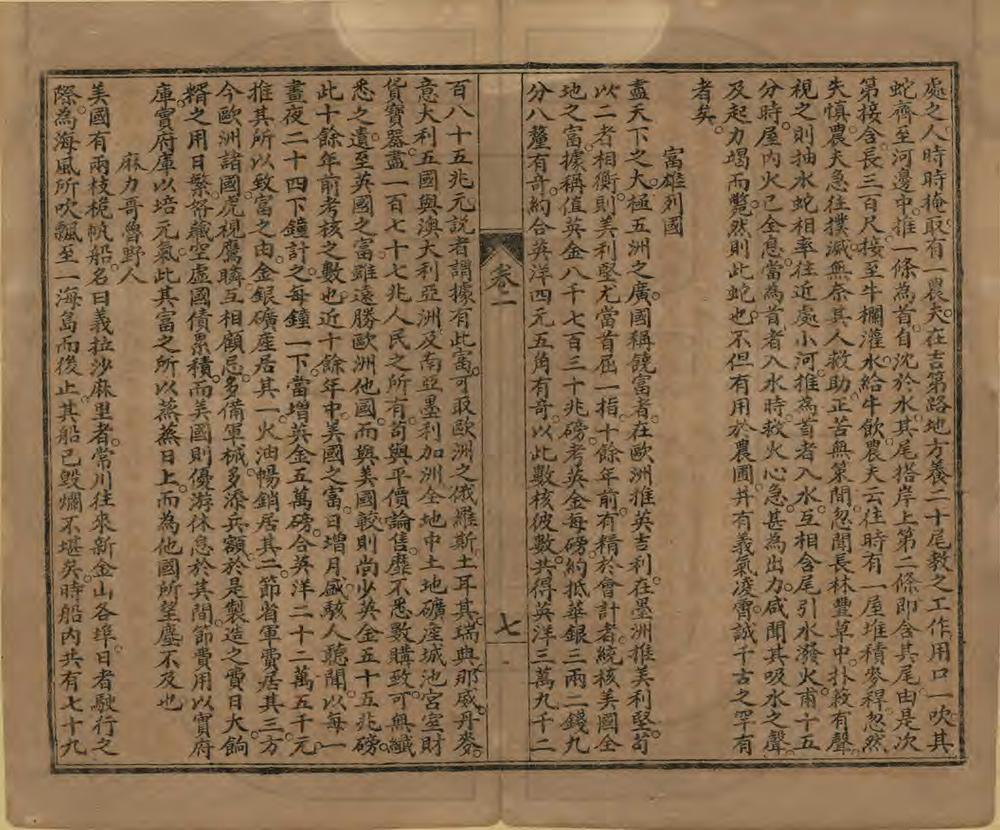 處之人時時掩取有一農夫。在吉第路地方養二十尾教之工作用口一吹其
蛇齊至河邊中。推一條為首。自沈於水。其尾搭岸上第二條即含其尾由是次
第接含。長三百尺。接至牛欄灌水。給牛飲。農夫云往時有一屋堆積麥稈。忽然
失慎農夫急往撲滅無奈其人救助。正苦無策間。忽聞長林豐草中。扑簌有聲。
視之則抽水蛇相率往近處小河。推為首者入水互相含尾引水潑火甫十五
分時。屋內火已全息。當為首者入水時救火心急。甚為出力。咸聞其吸水之聲。
及起力竭而斃。然則此蛇也不但有用於農圃并有義氣凌霄誠千古之罕有
者矣。
富雄列國
盡天下之大。極五洲之廣。國稱饒富者。在歐洲推英吉利在墨洲推美利堅。苟
以二者相衡則美利堅尤當首屈一指十餘年前。有精於會計者。統核美國全
地之富。據稱值英金八千七百三十兆磅。考英金每磅約抵華銀三兩二錢九
分八釐有奇。約合英洋四元五角有奇。以此數核彼數。共得英洋三萬九千二
卷一
七
百八十五兆元說者謂據有此富。可取歐洲之俄羅斯。土耳其。瑞典。那威。丹麥。
意大利五國與澳大利亞洲及南亞墨利加洲全地中土地礦產城池宮室財
貨寶器。盡一百七十七兆人民之所有。苟與平價論售。靡不悉數購致。可無纖
悉之遺。至英國之富。雖遠勝歐洲他國。而與美國較。則尚少英金五十五兆磅。
此十餘年前考核之數也。近十餘年中。美國之富。日增月盛。駭人聽聞。以每一
晝夜二十四下鐘計之。每鐘一下。當增英金五萬磅。合英洋二十二萬五千元。
推其所以致富之由。金銀礦產居其一火油暢銷居其二節省軍費居其三。方
今歐洲諸國。虎視鷹瞵。互相顧忌。多備軍械多添兵額。於是製造之費日大。餉
糈之用日繁。帑藏空虛國債累積。而美國則優游休息於其間。節費用以實府
庫。實府庫以培元氣。此其富之所以蒸蒸日上。而為他國所望塵不及也
麻力哥魯野人
美國有兩枝桅帆船。名曰義拉沙麻里者。常川往來新金山各埠。日者駛行之
際。為海風所吹。飄至一海島而後止。其船已毀爛不堪矣。時船內共有七十九